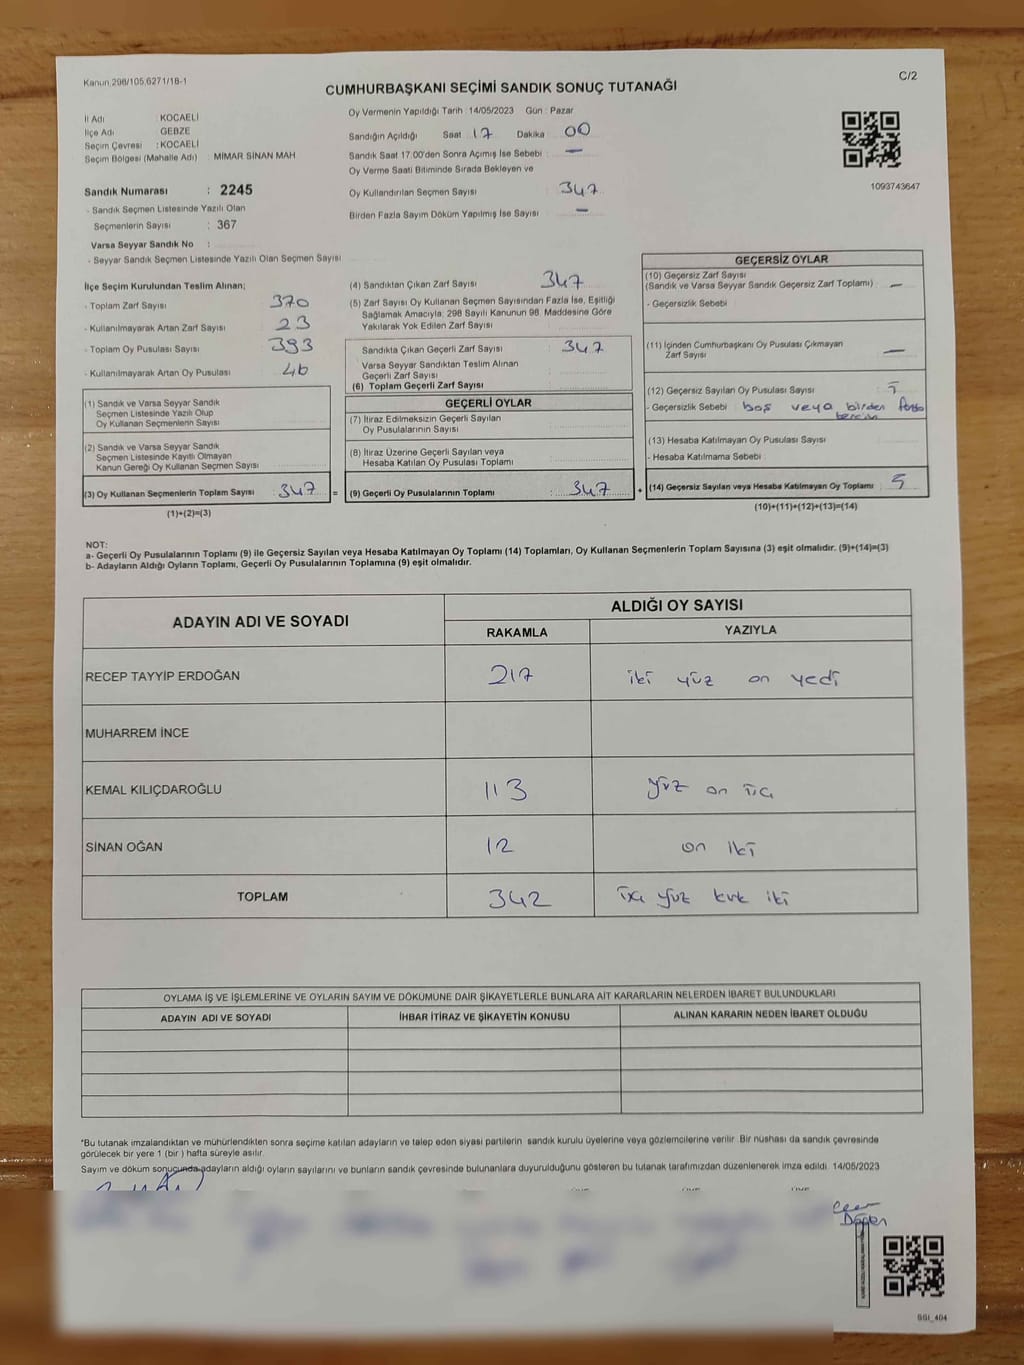 Kanun 298/105,6271/18-1
C/2
CUMHURBAŞKANI SEÇİMİ SANDIK SONUÇ TUTANAĞI
İl Adı : KOCAELİ
İlçe Adı GEBZE
Seçim Çevresi : KOCAELİ
Seçim Bölgesi (Mahalle Adı) : MİMAR SİNAN MAH
Sandık Numarası : 2245
- Sandık Seçmen Listesinde Yazılı Olan
Seçmenlerin Sayısı : 367
Varsa Seyyar Sandık No :
- Seyyar Sandık Seçmen Listesinde Yazılı Olan Seçmen Sayısı
Oy Vermenin Yapıldığı Tarih : 14/05/2023 Gün : Pazar
Sandığın Açıldığı Saat 17 Dakika 00
Sandık Saat 17.00'den Sonra Açımış İse Sebebi : —
Oy Verme Saati Bitiminde Sırada Bekleyen ve
Oy Kullandırılan Seçmen Sayısı 347
Birden Fazla Sayım Döküm Yapılmış İse Sayısı —
1093743647
İlçe Seçim Kurulundan Teslim Alınan;
- Toplam Zarf Sayısı 370
- Kullanılmayarak Artan Zarf Sayısı 23
- Toplam Oy Pusulası Sayısı 393
- Kullanılmayarak Artan Oy Pusulası 46
(1) Sandık ve Varsa Seyyar Sandık
Seçmen Listesinde Yazılı Olup
Oy Kullanan Seçmenlerin Sayısı
(2) Sandık ve Varsa Seyyar Sandık
Seçmen Listesinde Kayıtlı Olmayan
Kanun Gereği Oy Kullanan Seçmen Sayısı
(3) Oy Kullanan Seçmenlerin Toplam Sayısı : 347 =
(1)+(2)=(3)
(4) Sandıktan Çıkan Zarf Sayısı 347
(5) Zarf Sayısı Oy Kullanan Seçmen Sayısından Fazla İse, Eşitliği
Sağlamak Amacıyla; 298 Sayılı Kanunun 98. Maddesine Göre
Yakılarak Yok Edilen Zarf Sayısı
Sandıkta Çıkan Geçerli Zarf Sayısı : 347
Varsa Seyyar Sandıktan Teslim Alınan
Geçerli Zarf Sayısı
(6) Toplam Geçerli Zarf Sayısı
GEÇERLİ OYLAR
(7) İtiraz Edilmeksizin Geçerli Sayılan
Oy Pusulalarının Sayısı
(8) İtiraz Üzerine Geçerli Sayılan veya
Hesaba Katılan Oy Pusulası Toplamı
(9) Geçerli Oy Pusulalarının Toplamı : 347 +
GEÇERSİZ OYLAR
(10) Geçersiz Zarf Sayısı
(Sandık ve Varsa Seyyar Sandık Geçersiz Zarf Toplamı) : —
- Geçersizlik Sebebi
(11) İçinden Cumhurbaşkanı Oy Pusulası Çıkmayan
Zarf Sayısı —
(12) Geçersiz Sayılan Oy Pusulası Sayısı : 5
- Geçersizlik Sebebi boş veya birden fazla
(13) Hesaba Katılmayan Oy Pusulası Sayısı
- Hesaba Katılmama Sebebi
(14) Geçersiz Sayılan veya Hesaba Katılmayan Oy Toplamı : 5
(10)+(11)+(12)+(13)=(14)
NOT:
a- Geçerli Oy Pusulalarının Toplamı (9) ile Geçersiz Sayılan veya Hesaba Katılmayan Oy Toplamı (14) Toplamları, Oy Kullanan Seçmenlerin Toplam Sayısına (3) eşit olmalıdır. (9)+(14)=(3)
b- Adayların Aldığı Oyların Toplamı, Geçerli Oy Pusulalarının Toplamına (9) eşit olmalıdır.
ADAYIN ADI VE SOYADI
ALDIĞI OY SAYISI
RAKAMLA YAZIYLA
RECEP TAYYİP ERDOĞAN 217 iki yüz on yedi
MUHARREM İNCE
KEMAL KILIÇDAROĞLU 113 yüz on üç
SİNAN OĞAN 12 on iki
TOPLAM 342 üç yüz kırk iki
OYLAMA İŞ VE İŞLEMLERİNE VE OYLARIN SAYIM VE DÖKÜMÜNE DAİR ŞİKAYETLERLE BUNLARA AİT KARARLARIN NELERDEN İBARET BULUNDUKLARI
ADAYIN ADI VE SOYADI İHBAR İTİRAZ VE ŞİKAYETİN KONUSU ALINAN KARARIN NEDEN İBARET OLDUĞU
*Bu tutanak imzalandıktan ve mühürlendikten sonra seçime katılan adayların ve talep eden siyasi partilerin sandık kurulu üyelerine veya gözlemcilerine verilir. Bir nüshası da sandık çevresinde
görülecek bir yere 1 (bir ) hafta süreyle asılır.
Sayım ve döküm sonucunda adayların aldığı oyların sayılarını ve bunların sandık çevresinde bulunanlara duyurulduğunu gösteren bu tutanak tarafımızdan düzenlenerek imza edildi. 14/05/2023
SGI_404